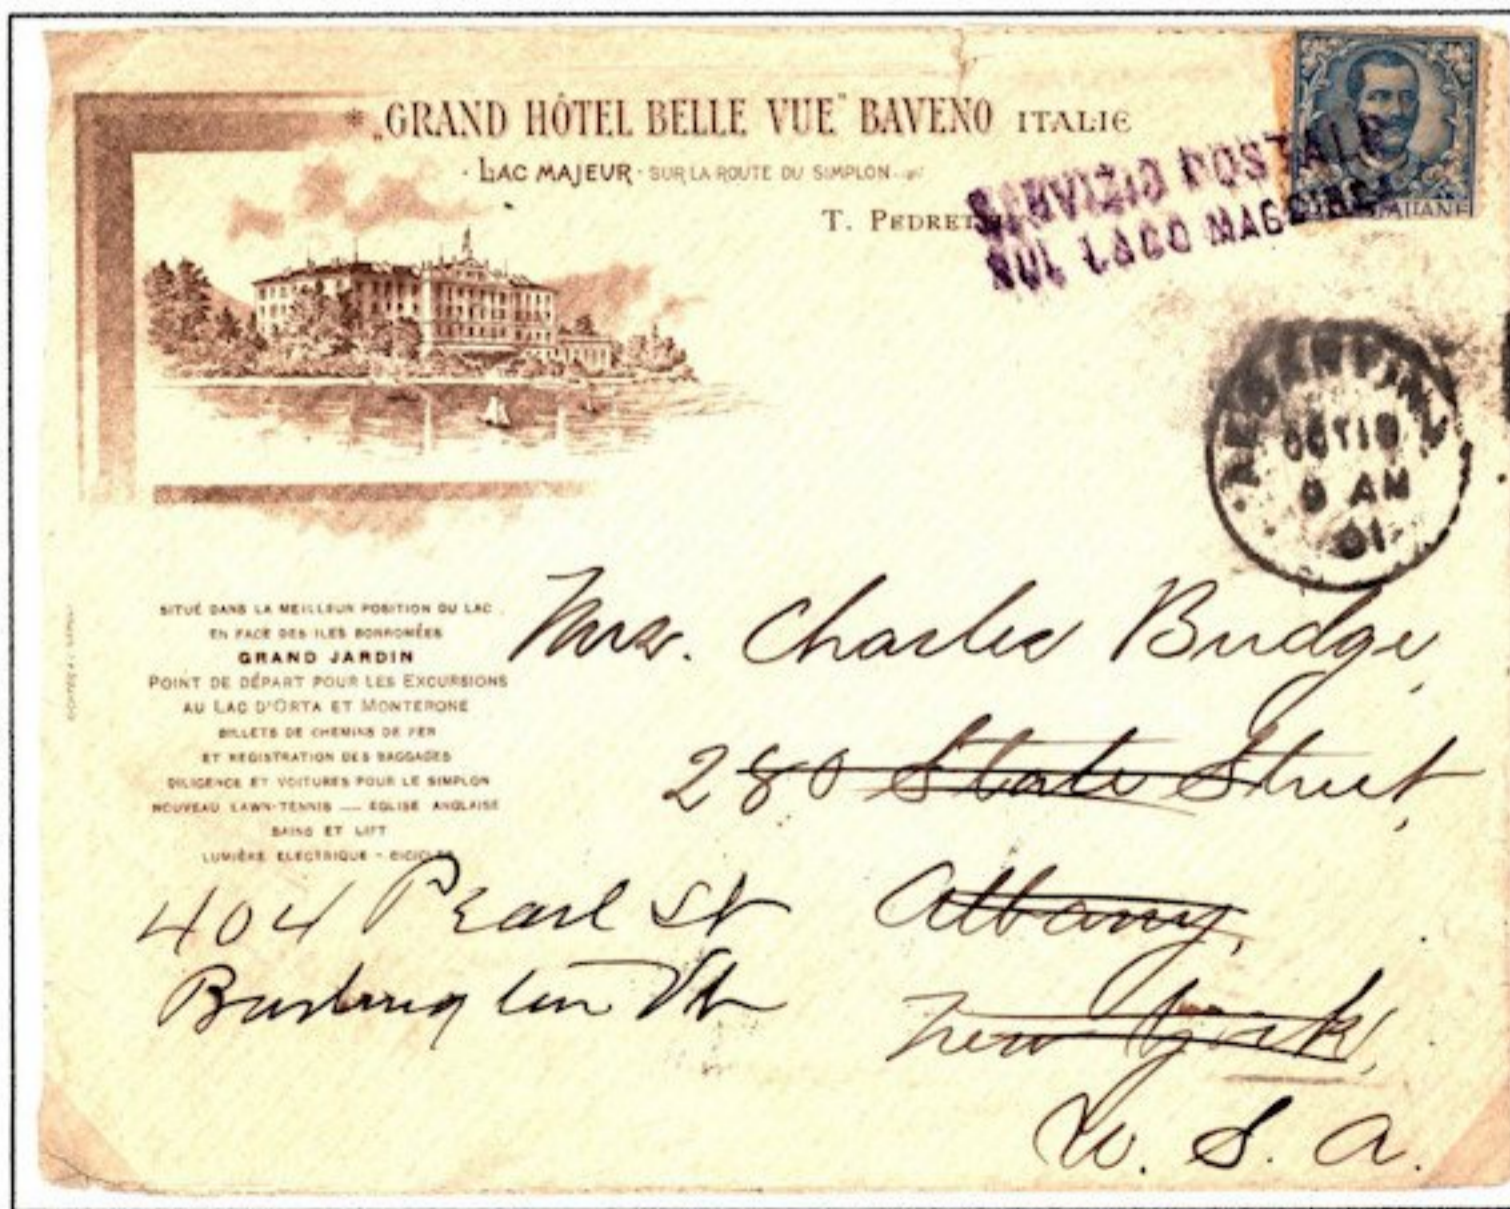 „GRAND HÔTEL BELLE VUE" BAVENO ITALIE
· LAC MAJEUR · SUR LA ROUTE DU SIMPLON
T. PEDRET
SERVIZIO POSTALE
SUL LAGO MAGGIORE
OCT 18
9 AM
01
SITUÉ DANS LA MEILLEUR POSITION DU LAC
EN FACE DES ILES BORROMÉES
GRAND JARDIN
POINT DE DÉPART POUR LES EXCURSIONS
AU LAC D'ORTA ET MONTERONE
BILLETS DE CHEMINS DE FER
ET REGISTRATION DES BAGGAGES
DILIGENCE ET VOITURES POUR LE SIMPLON
NOUVEAU LAWN-TENNIS — EGLISE ANGLAISE
BAINS ET LIFT
LUMIÈRE ELECTRIQUE -
Mrs. Charles Budge,
280 State Street,
Albany,
New York,
U. S. A.
404 Pearl St
Burlington Vt